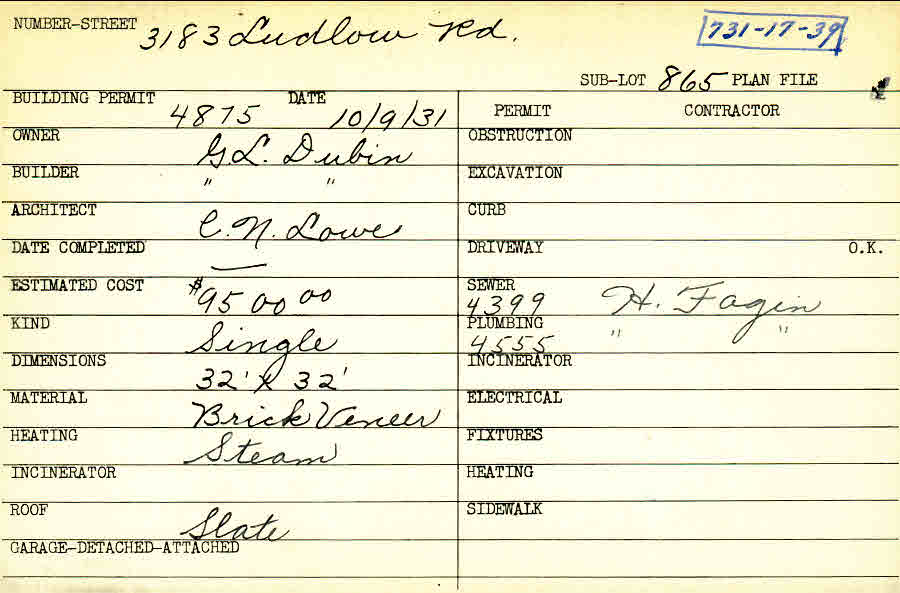 NUMBER-STREET 3183 Ludlow Rd. 731-17-39
SUB-LOT 865 PLAN FILE
BUILDING PERMIT 4875 DATE 10/9/31
PERMIT CONTRACTOR
OWNER G.L. Dubin
OBSTRUCTION
BUILDER " "
EXCAVATION
ARCHITECT C.N. Lowe
CURB
DATE COMPLETED —
DRIVEWAY O.K.
ESTIMATED COST $9500 00
SEWER 4399 H. Fagin
KIND Single
PLUMBING 4555 " "
DIMENSIONS 32' x 32'
INCINERATOR
MATERIAL Brick Veneer
ELECTRICAL
HEATING Steam
FIXTURES
INCINERATOR
HEATING
ROOF Slate
SIDEWALK
GARAGE-DETACHED-ATTACHED